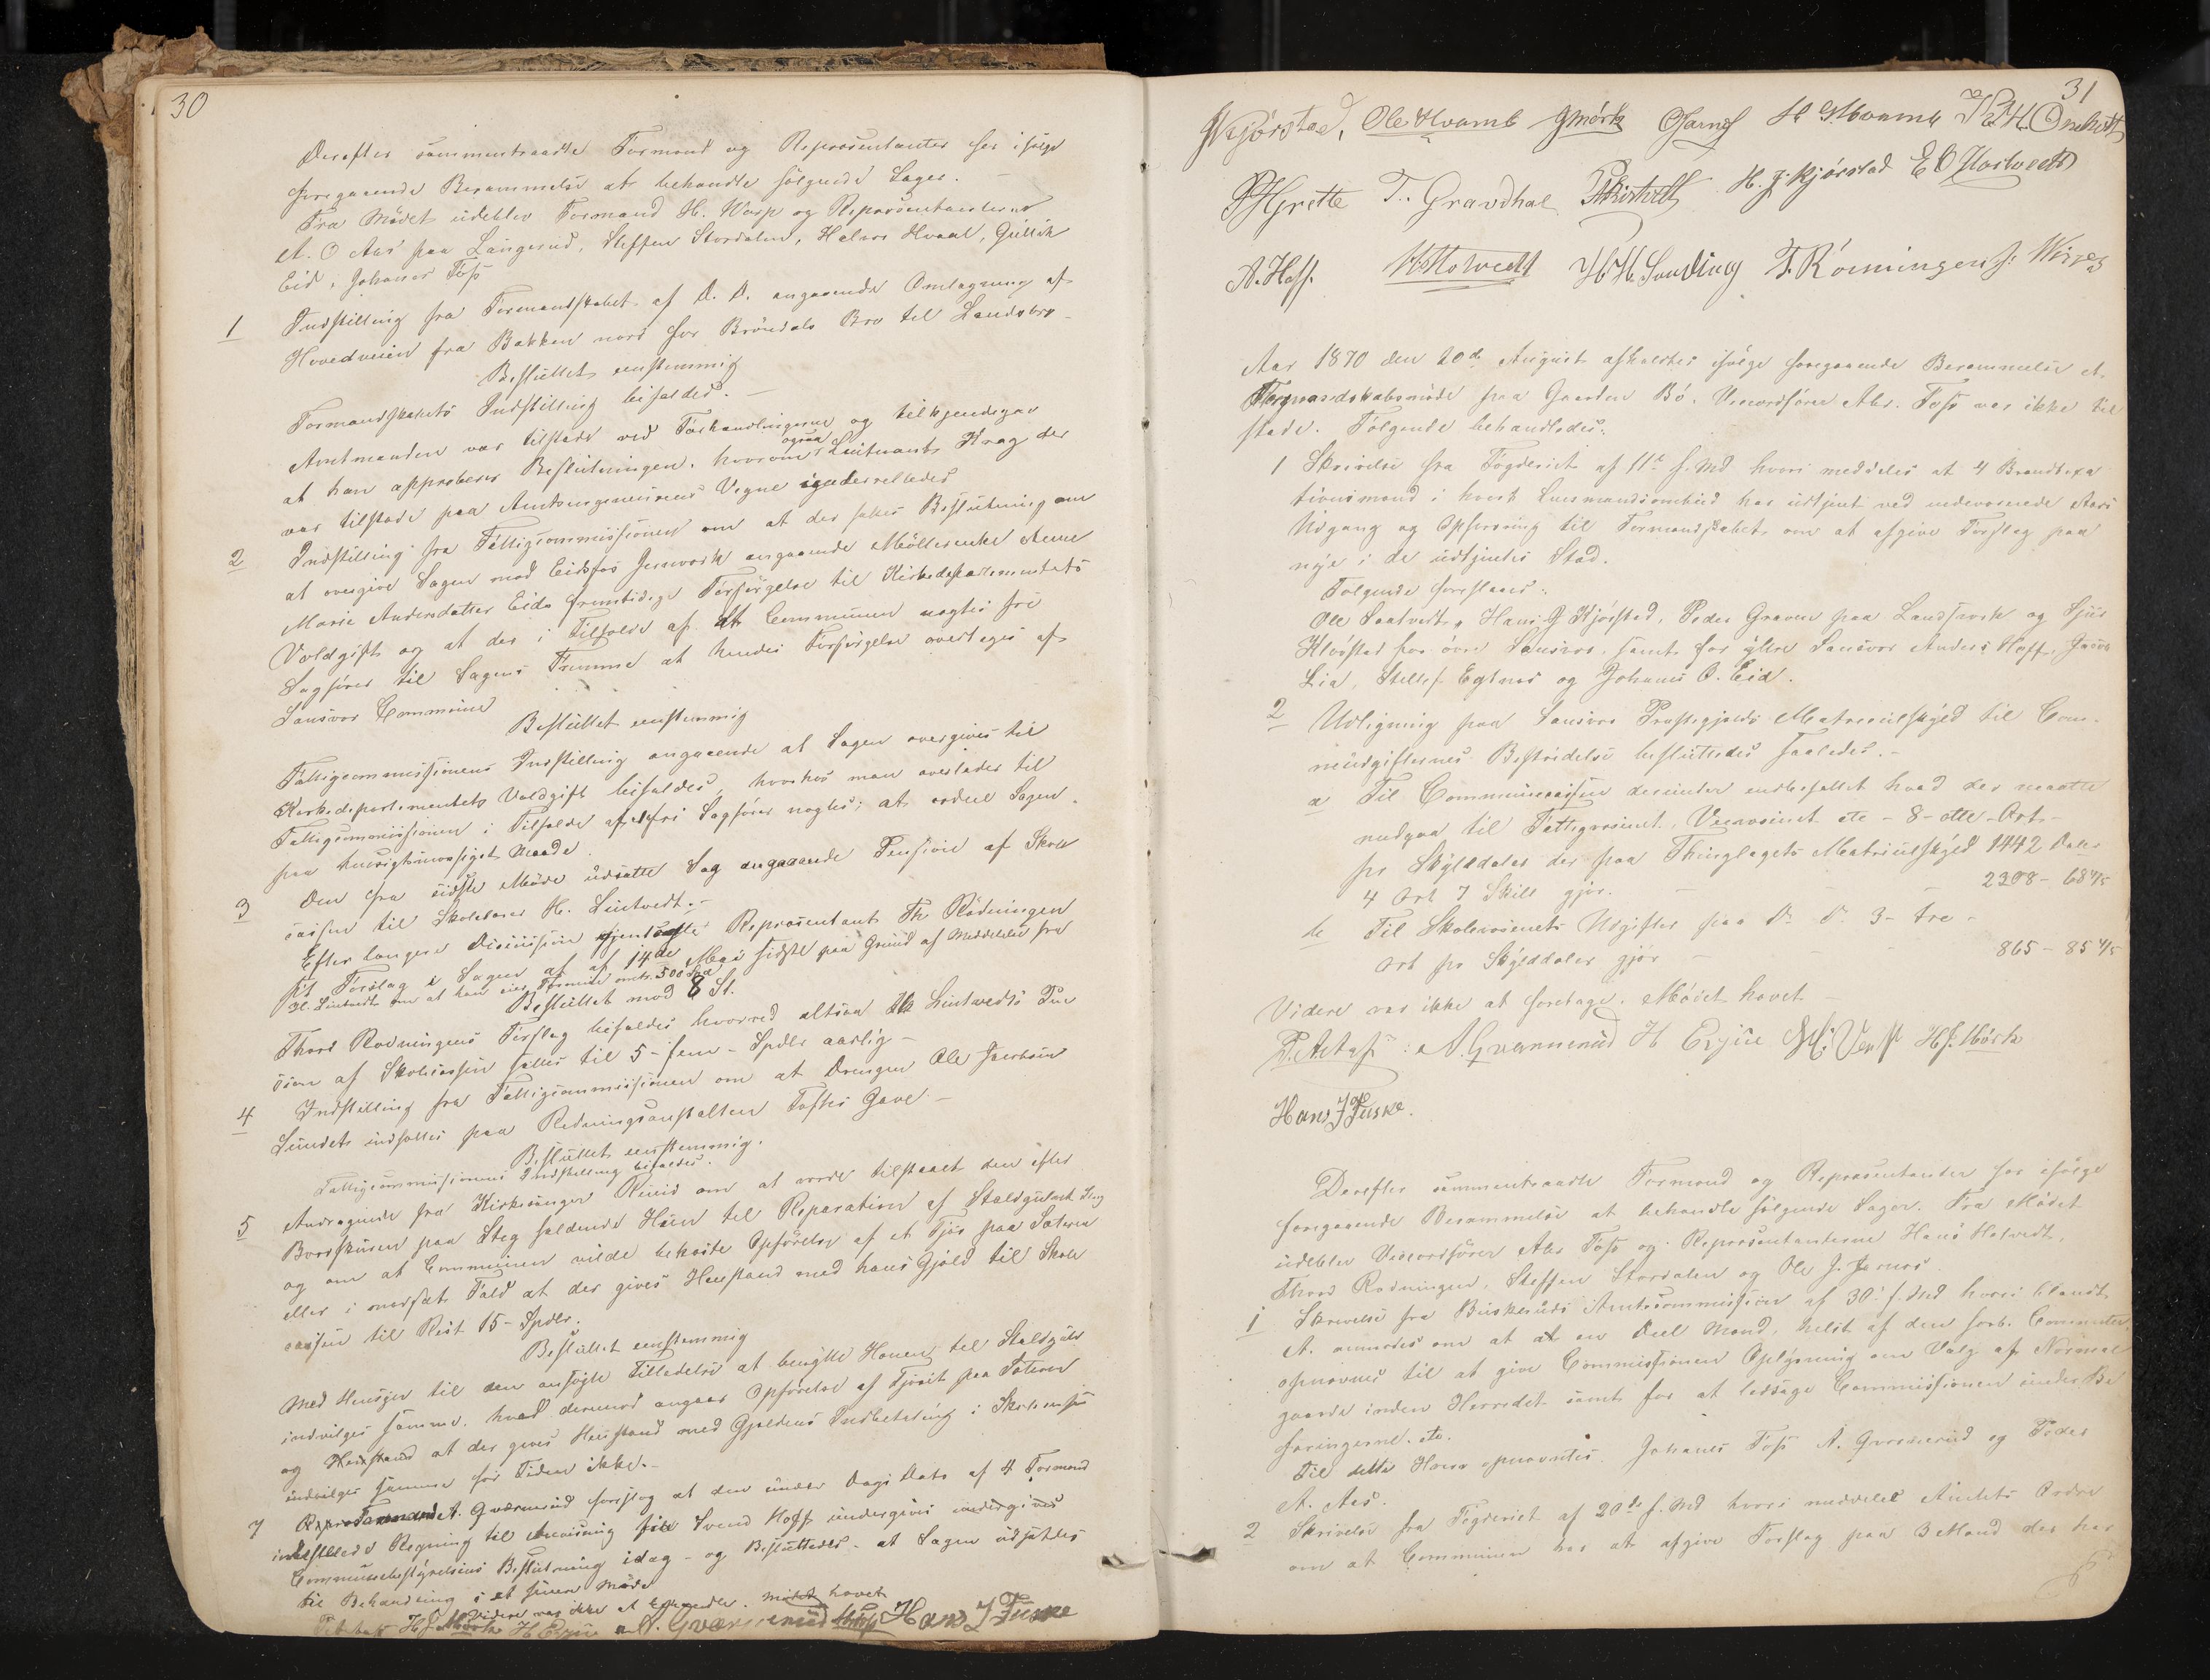 30
Derefter sammentraadte Formænd og Repræsentanter her ifølge
foregaaende Berammelse at behandle følgende Sager. —
Fra Mødet udeblev Formand H. Wærp og Repræsentanterne
A. O Aas paa Langerud, Steffen Stordalen, Halvor Hvaal, Gullik
Eid, Johanes Foss
1 Indstilling fra Formandskabet af D. D. angaaende Omlægning af
Hovedveien fra Bakken nord for Brøndals Bro til Landsbro —
Besluttet eenstemmig
Formandskabets Indstilling bifaldes. —
Amtmanden var tilstæde ved Forhandlingerne og tilkjendegav
at han approberer Beslutningen, hvorom ogsaa Lieutnant Krag der
var tilstæde paa Amtsingenieurens Vegne underrettedes
2 Indstilling fra Fattigcommissionen om at der fattes Beslutning om
at overgive Sagen med Eidsfos Jernværk angaaende Møllerenke Anne
Marie Andersdatter Eids fremtidige Forsørgelse til Kirkedepartementets
Voldgift og at der i Tilfælde af at Communen nægtes fri
Sagfører til Sagens Fremme at hendes Forsørgelse overtages af
Sansvær Commune
Besluttet eenstemmig
Fattigcommissionens Indstilling angaaende at Sagen overgives til
Kirkedepartementets Voldgift bifaldes, hvorhos man overlader til
Fattigcommissionen i Tilfælde af at fri Sagfører nægtes, at ordne Sagen
paa hensigtsmæssigst Maade.
3 Den fra sidste Møde udsatte Sag angaaende Pension af Skole
cassen til Skolelærer H. Lintvedt. —
Efter længere Discussion gjentog Repræsentant Th. Rødningen
sit Forslag i Sagen af 14de Mai sidste paa Grund af Meddelelse fra
H. Lintvedt om at han eier Formue omtr. 500 Spd
Besluttet mod 8 St.
Thord Rødningens Forslag bifaldes hvorved altsaa H. Lintvedts Pen
sion af Skolecassen sættes til 5 - fem - Spdlr aarlig —
4 Indstilling fra Fattigcommissionen om at Drengen Ole Jacobsen
Lundet indsættes paa Redningsanstalten Toftes Gave —
Besluttet eenstemmig.
Fattigcommissionens Indstilling bifaldes.
5 Andragende fra Kirkesanger Ruud om at vorde tilstaaet den efter
Bordskuren paa Steg faldende Hun til Reparation af Staldgulvet Steg
og om at Communen vilde bekoste Opførelse af et Fjøs paa Sæteren
eller i modsat Fald at der gives Henstand med hans Gjæld til Skole
cassen til Rest 15 - Spdlr.
Besluttet eenstemmig
Med Hensyn til den ansøgte Tilladelse at benytte Hunen til Staldgulv
indvilges samme, hvad derimod angaar Opførelse af Fjøset paa Sæteren
og Henstand at der gives Henstand med Gjældens Indbetaling i Skolecassen
indvilges samme for Tiden ikke. —
7 Formand A. Gværnerud forslog at den under Dags Dato af 4 Formænd
indstillede Regning til Anvisning fra Svend Hoff undergives
Communebestyrelsens Beslutning idag - og Besluttedes - at Sagen udsættes
til Behandling i et senere Møde
Videre var ikke at behandle. Mødet hævet
H J Mørk H Ezjue A. Gværnerud Hans J Fuske
31
Kjørstad, Ole Hvamb GMørk OJarnæs H Mvamb
PHGrette T. Gravdhal H. J. Kjørstad E O Hostvedt
A. Hoff. HHolvedt H H Sending T. Rørningen
Aar 1870 den 20de August afholdtes ifølge foregaaende Berammelse et
Formandskabsmøde paa Gaarden Bø. Viceordfører Abr. Foss var ikke til
stæde. Følgende behandledes:
1 Skrivelse fra Fogderiet af 11te f. Md hvori meddeles at 4 Brandtaxa
tionsmænd i hvert Lensmandsombud har udtjent ved indeværende Aars
Udgang og Opfordring til Formandskabet om at afgive Forslag paa
nye i de udtjentes Sted.
Følgende foreslaaes:
Ole Saatvedt, Hans J Kjørstad, Peder Graven paa Landsværk og Sjur
Kløvstad for øvre Sansvær, samt for ytre Sansvær Anders Hoff, Jacob
Lia, Stellef Egtnæs og Johanes O. Eid.
2 Udligning paa Sansvær Præstegjælds Matriculskyld til Com-
muneudgifternes Bestridelse besluttedes saaledes. —
a Til Communecassen derunder indbefattet hvad der maatte
medgaa til Fattigvæsenet, Veivæsenet etc - 8 - otte - Ort -
pr Skylddaler der paa Thinglagets Matriculskyld 1442 Daler
4 Ort 7 Skill gjør. — — — 2308 - 68 4/5
b Til Skolevæsenets Udgifter paa D. D. 3 - tre -
Ort pr Skylddaler gjør — — — 865 - 85 4/5
Videre var ikke at foretage. Mødet hævet —
A. Gværnerud H Ezjue H. Værp HJ. Mørk
Hans J Fuske.
Derefter sammentraadte Formænd og Repræsentanter her ifølge
foregaaende Berammelse at behandle følgende Sager. Fra Mødet
udeblev Viceordfører Abr Foss og Repræsentanterne Hans Holvedt,
Thord Rødningen, Steffen Stordalen og Ole J. Jarnæs.
1 Skrivelse fra Buskeruds Amtscommission af 30. f. Md hvori blandt
A. anmodes om at at en Deel Mænd, helst af den forb. Committee,
opnævnes til at give Commissionen Oplysning om Valg af Normal
gaarde inden Herredet samt for at ledsage Commissionen under Be
faringerne. etc.
Til dette Hverv opnævntes. Johanes Foss A. Gværnerud og Peder
A. Aas.
2 Skrivelse fra Fogderiet af 20de f. Md hvori meddeles Amtets Ordre
om at Communen har at afgive Forslag paa 3 Mænd der har